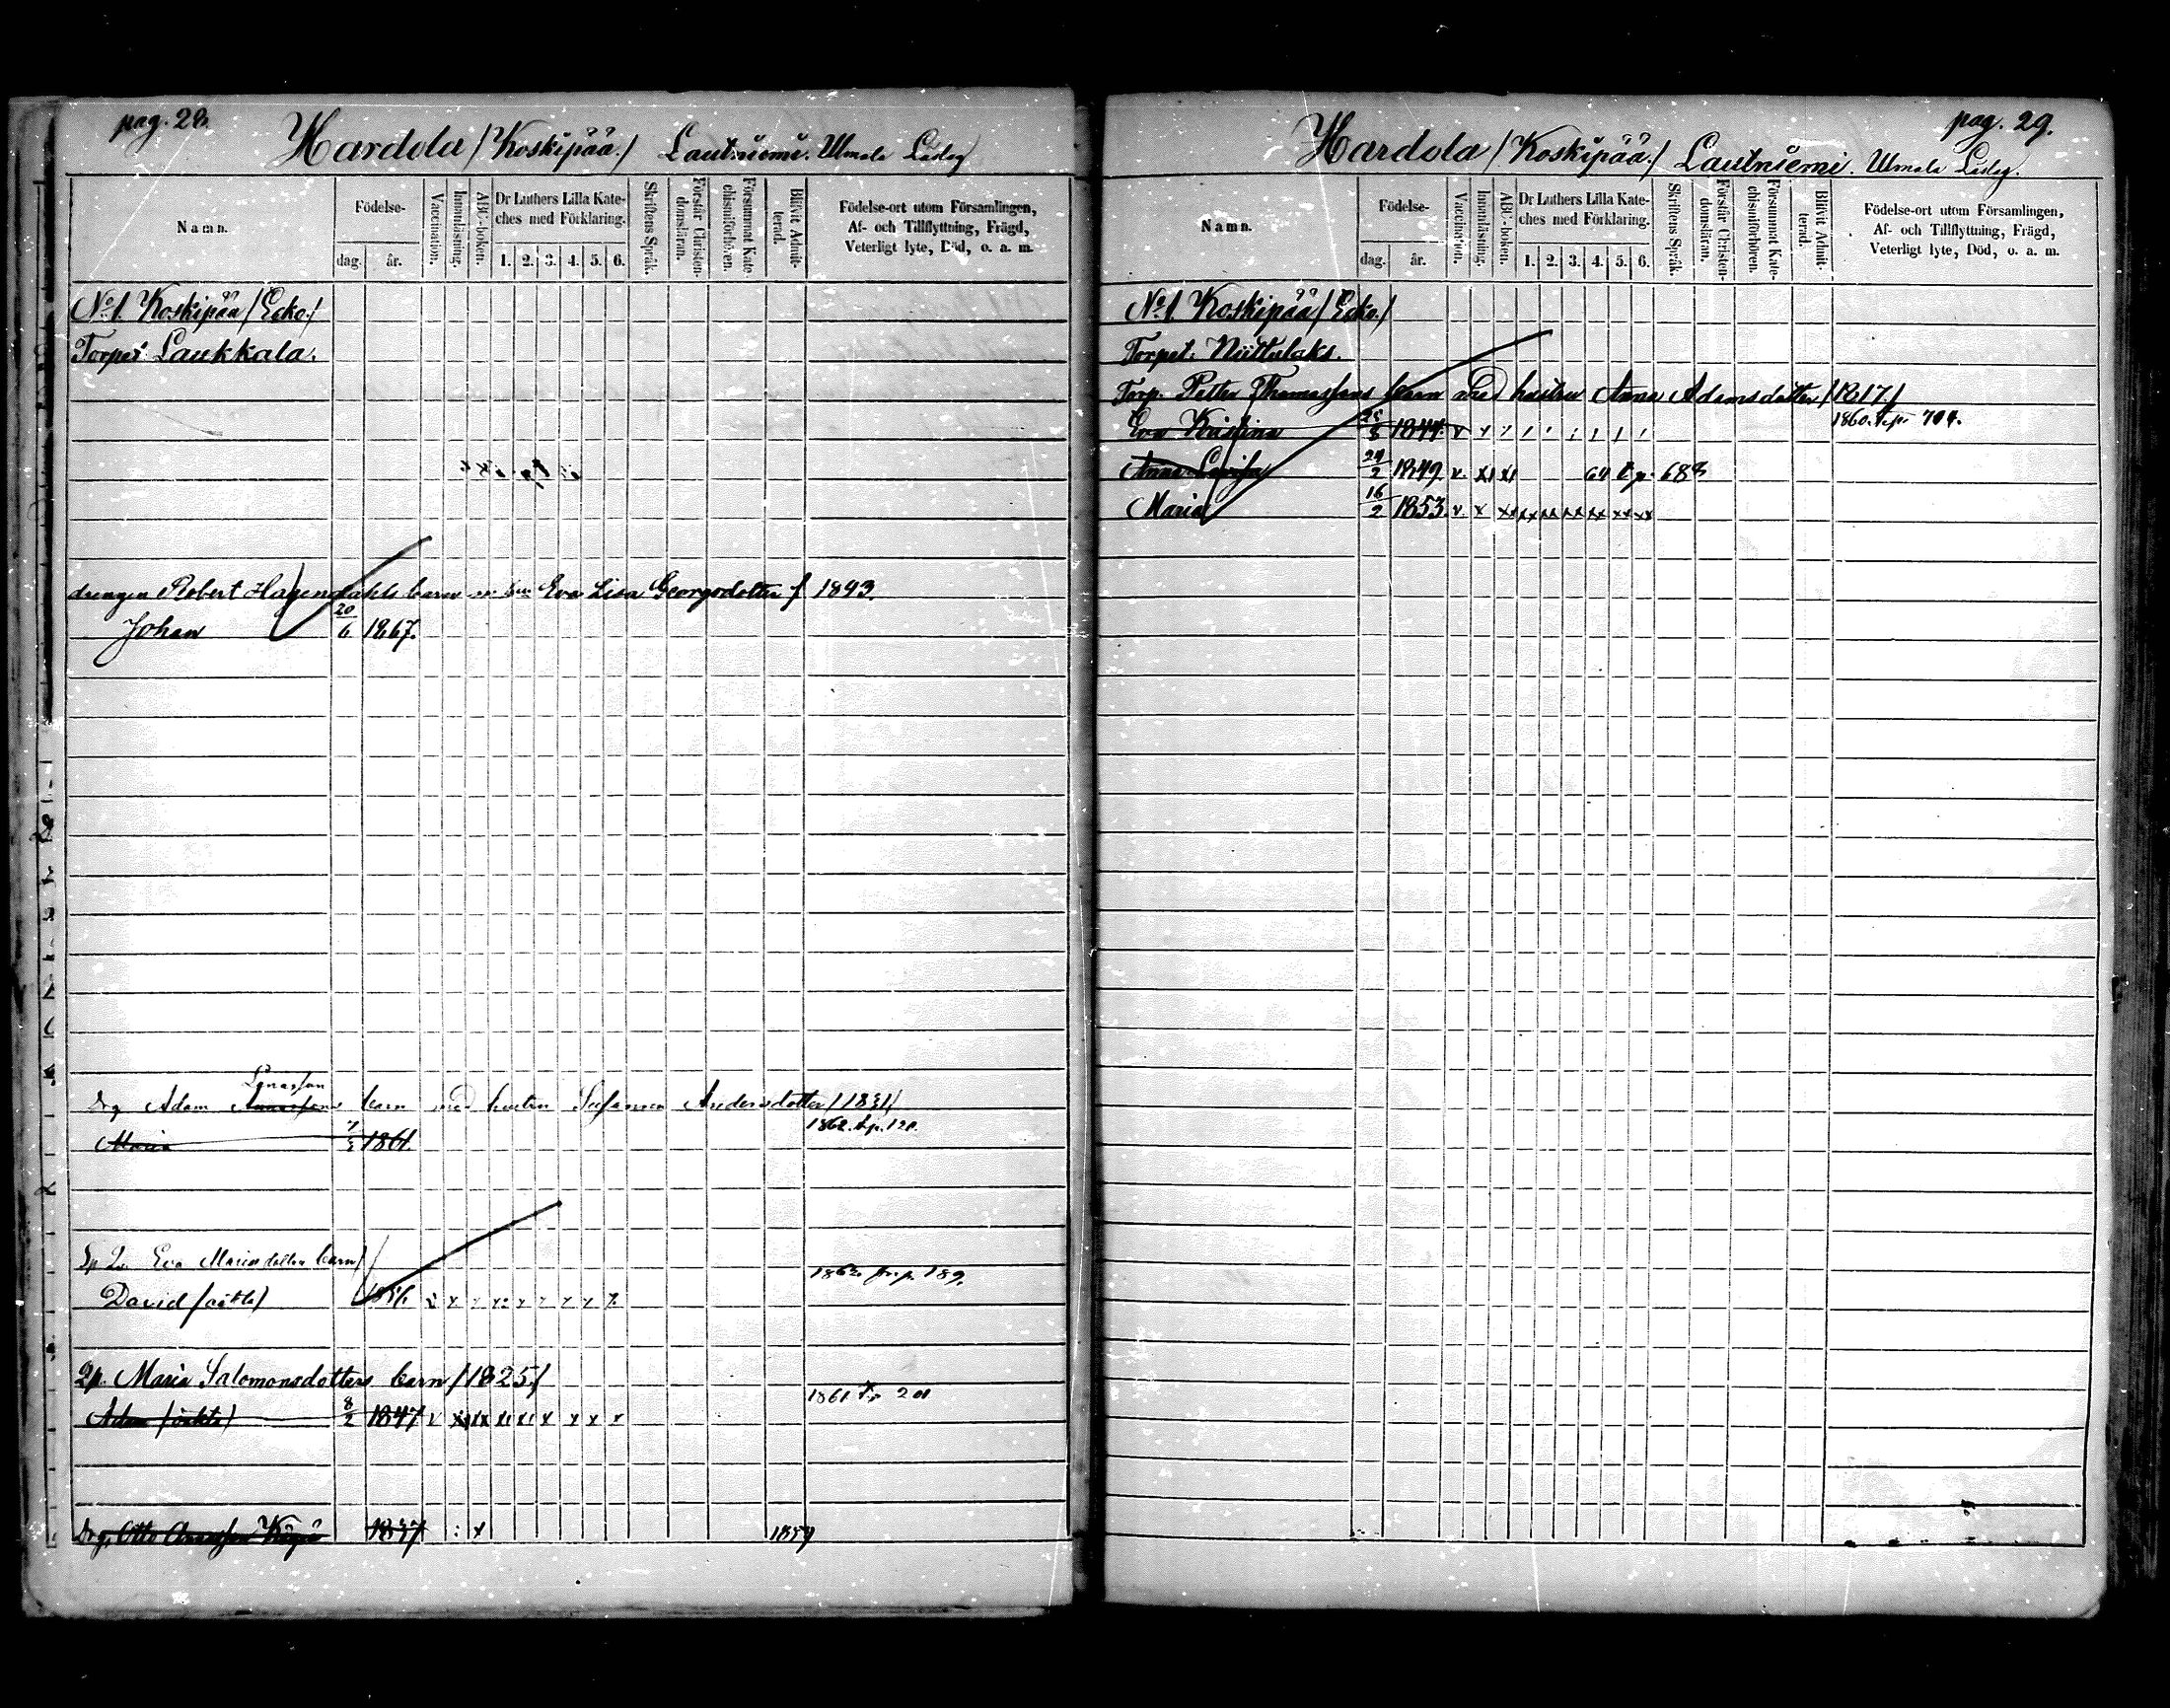 pag. 28.
Hardola /Koskipää./ Lautniemi.
Namn.
Födelse-
dag.
år.
Vaccination.
Innanläsning.
ABC-boken.
Dr Luthers Lilla Kate-
ches med Förklaring.
1. 2. 3. 4. 5. 6.
Skriftens Språk.
Förstår Christen-
domsläran.
Försummat Kate-
chismiförhören.
Blifvit Admit-
terad.
Födelse-ort utom Församlingen,
Af- och Tillflyttning, Frägd,
Veterligt lyte, Död, o. a. m.
No 1. Koskipää /Ecko./
Torpet Laukkala.
drengen Robert Hagendahls barn Eva Lisa Georgsdotter f 1843.
Johan 20/6 1867.
Linasson
Drg Adam barn med hustrun Andersdotter /1831/
Maria 1861. 1862. t.p. 120.
Eva Mariasdotters barn/
David /oäkta/ 1862 fr. p. 189.
Maria Salomonsdotters barn /1825/
Adam /oäkta/ 8/2 1847 v 1861 t.p. 201
Drg. Otto 1837
pag. 29.
Hardola /Koskipää./ Lautniemi.
Namn.
Födelse-
dag.
år.
Vaccination.
Innanläsning.
ABC-boken.
Dr Luthers Lilla Kate-
ches med Förklaring.
1. 2. 3. 4. 5. 6.
Skriftens Språk.
Förstår Christen-
domsläran.
Försummat Kate-
chismiförhören.
Blifvit Admit-
terad.
Födelse-ort utom Församlingen,
Af- och Tillflyttning, Frägd,
Veterligt lyte, Död, o. a. m.
No 1. Koskipää /Ecko./
Torpet Niittulaks.
Torp. Petter Thomassons barn med hustru Anna Adamsdotter /1817/
Eva Kristina 1844. v 1860. t.p. 704.
Anna Lovisa 24/2 1849. v. 64 t p. 688
Maria 16/2 1853. v. x